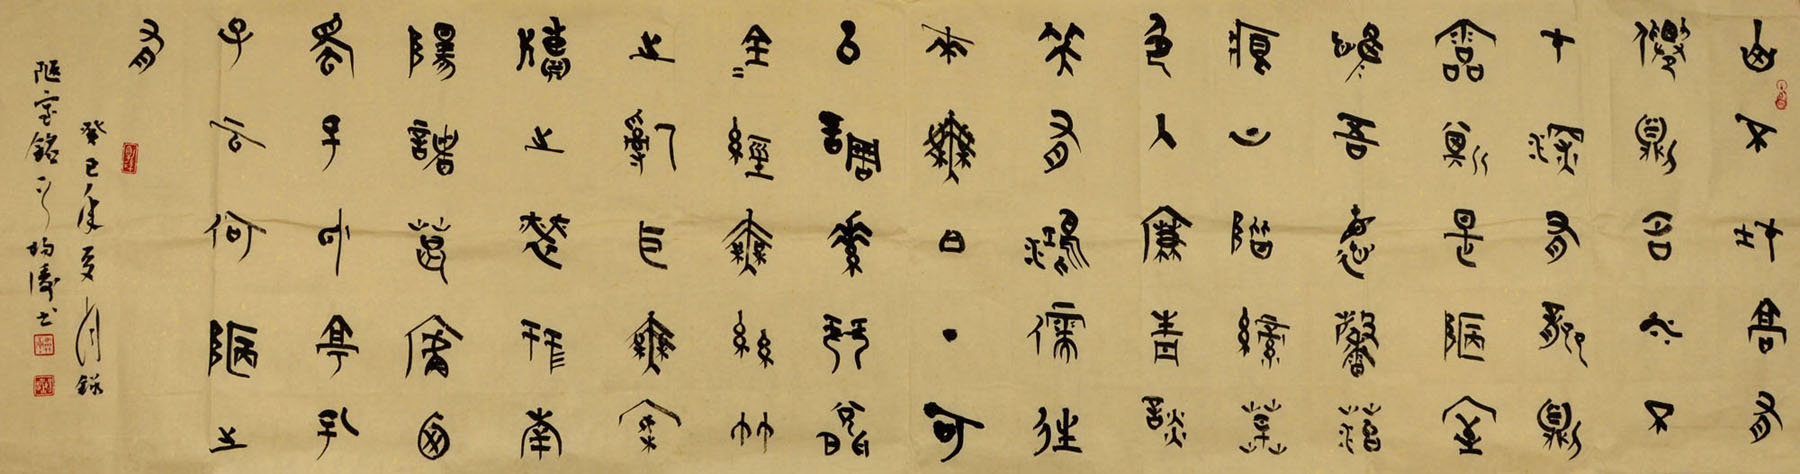 山不在高有
僊則名水不
在深有龍則
靈斯是陋室
惟吾德馨苔
痕上階綠草
色入簾青談
笑有鴻儒往
來無白丁可
以調素琴閱
金經無絲竹
之亂耳無案
牘之勞形南
陽諸葛廬西
蜀子云亭孔
子云何陋之
有
癸巳年夏月錄
陋室銘 均濤書